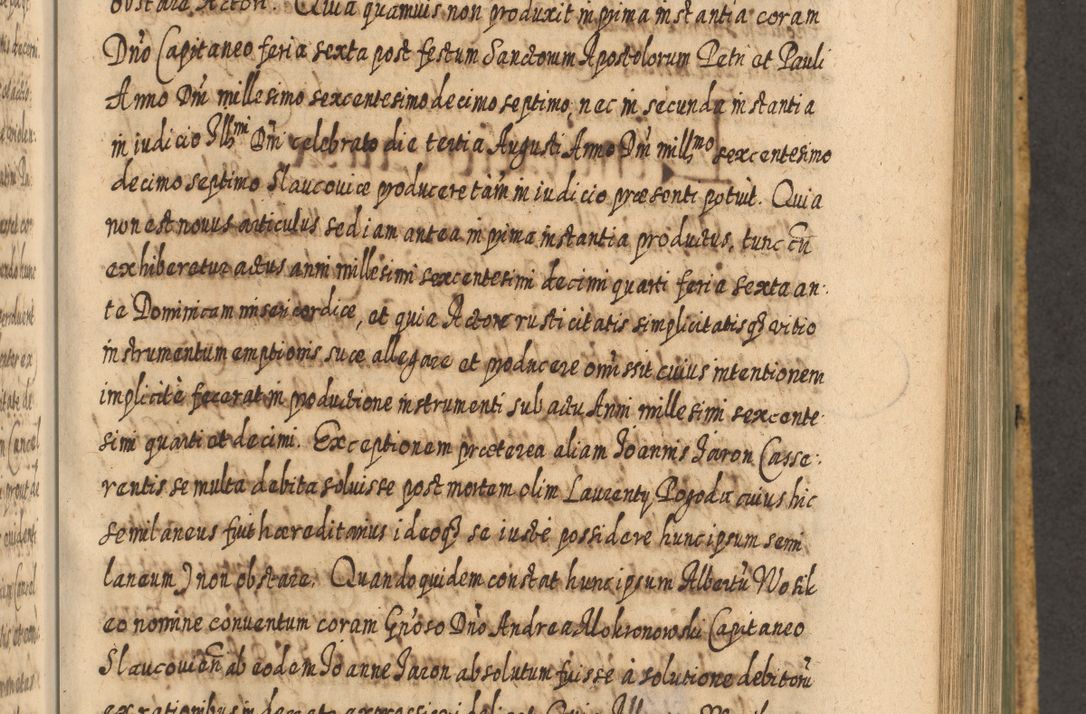 obstare Actori. Quia quamuis non produxit in prima instantia coram
Dno Capitaneo feria sexta post festum Sanctorum Apostolorum Petri et Pauli
Anno Dni millesimo sexcentesimo decimo septimo, nec in secunda instantia
in iudicio Illmi Dni celebrato die tertia Augusti Anno Dni millmo sexcentesimo
decimo septimo Slaucoviæ producere tam in iudicio præsenti potuit. Quia
non est novus articulus sed iam antea in prima instantia productus, tunc cum
exhiberetur actus anni millesimi sexcentesimi decimi quarti feria sexta an-
te Dominicam misericordiæ, et quia Actore rusticitatis simplicitatisq vitio
instrumentum emptionis suæ allegare et producere omissit cuius intentionem
implicitè fecerat in productione instrumenti sub actu Anni millesimi sexcente-
simi quarti et decimi. Exceptionem præterea aliam Joannis Jaron Casse-
rentis se multa debita soluisse post mortem olim Laurenty Pogoda cuius hic
semilaneus fuit hæreditarius ideoq se iustè possidere hunc ipsum semi
laneum) non obstare. Quandoquidem constat hunc ipsum Albertu Wosik
eo nomine conuentum coram Gnoso Dno Andrea Mokronowski Capitaneo
Slaucouien ab eodem Joanne Jaron absolutum fuisse à solutione debitoru